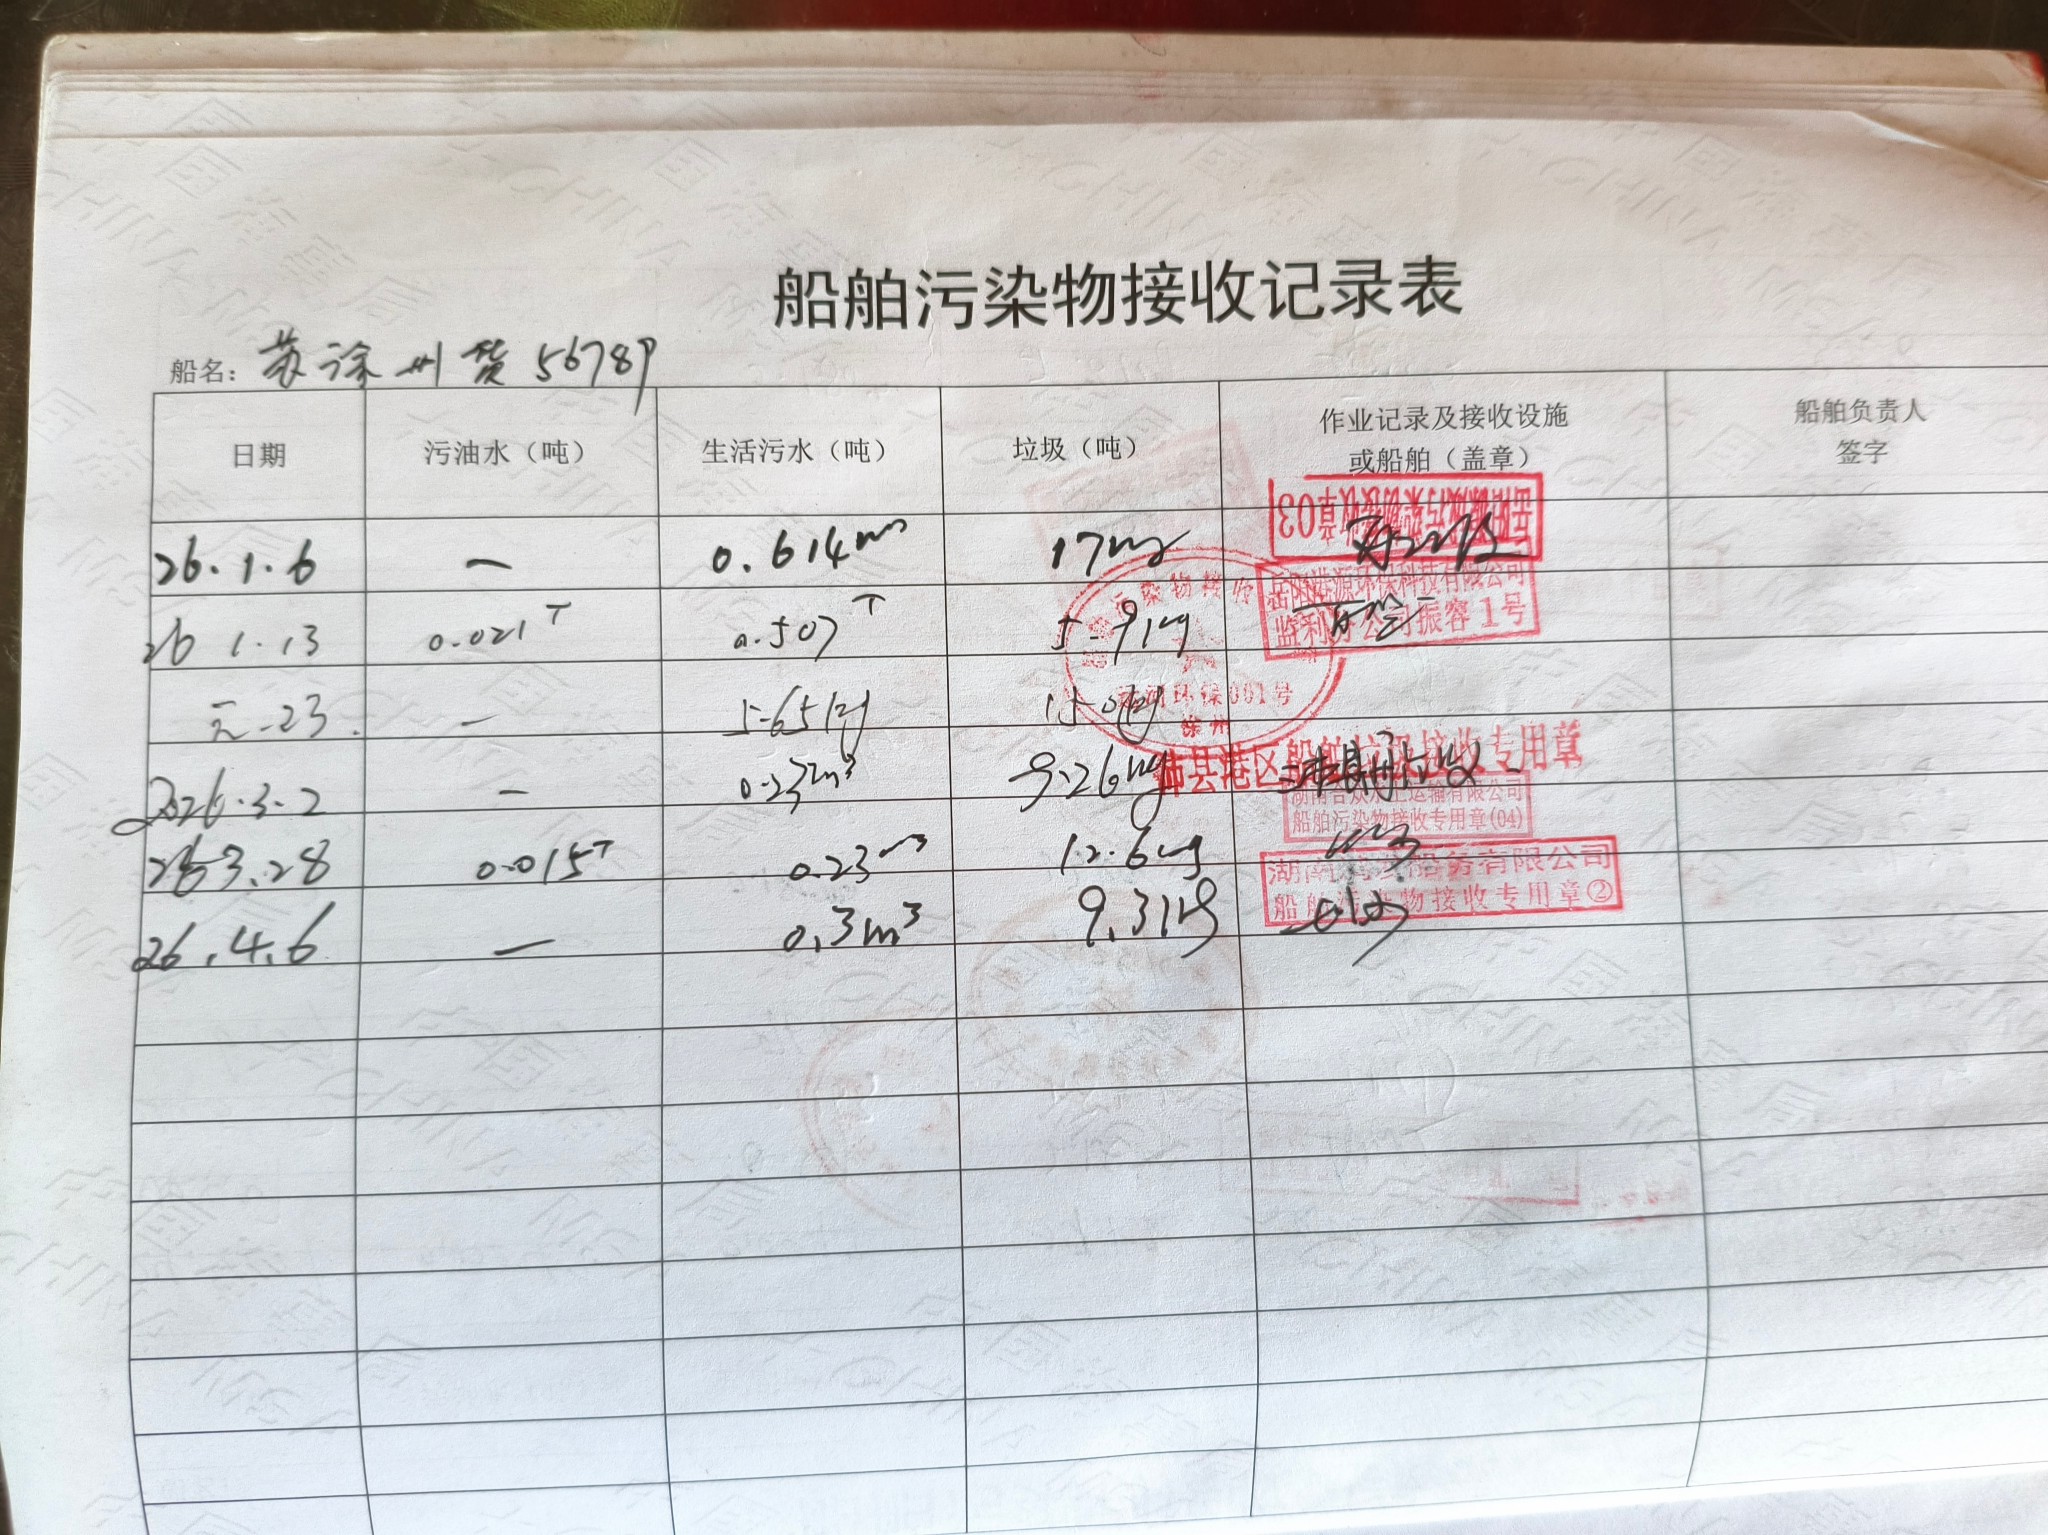 船舶污染物接收记录表
船名：苏徐州货56789
日期 污油水（吨） 生活污水（吨） 垃圾（吨） 作业记录及接收设施或船舶（盖章） 船舶负责人签字
26.1.6 — 0.614m³ 17kg
岳阳船舶污染物接收章03
26 1.13 0.021T 0.507T 5.91kg
岳阳港源环保科技有限公司
监利分公司振容1号
污染物接收
环保001号
徐州
元-23. — 5.65kg 15.0kg
2026.3.2 — 0.232m³ 9.26kg
沛县港区船舶垃圾接收专用章
湖南合众水上运输有限公司
船舶污染物接收专用章(04)
26 3.28 0.015T 0.23m³ 12.6kg
湖南 船务有限公司
船舶污染物接收专用章②
26.4.6 — 0.3m³ 9.31kg